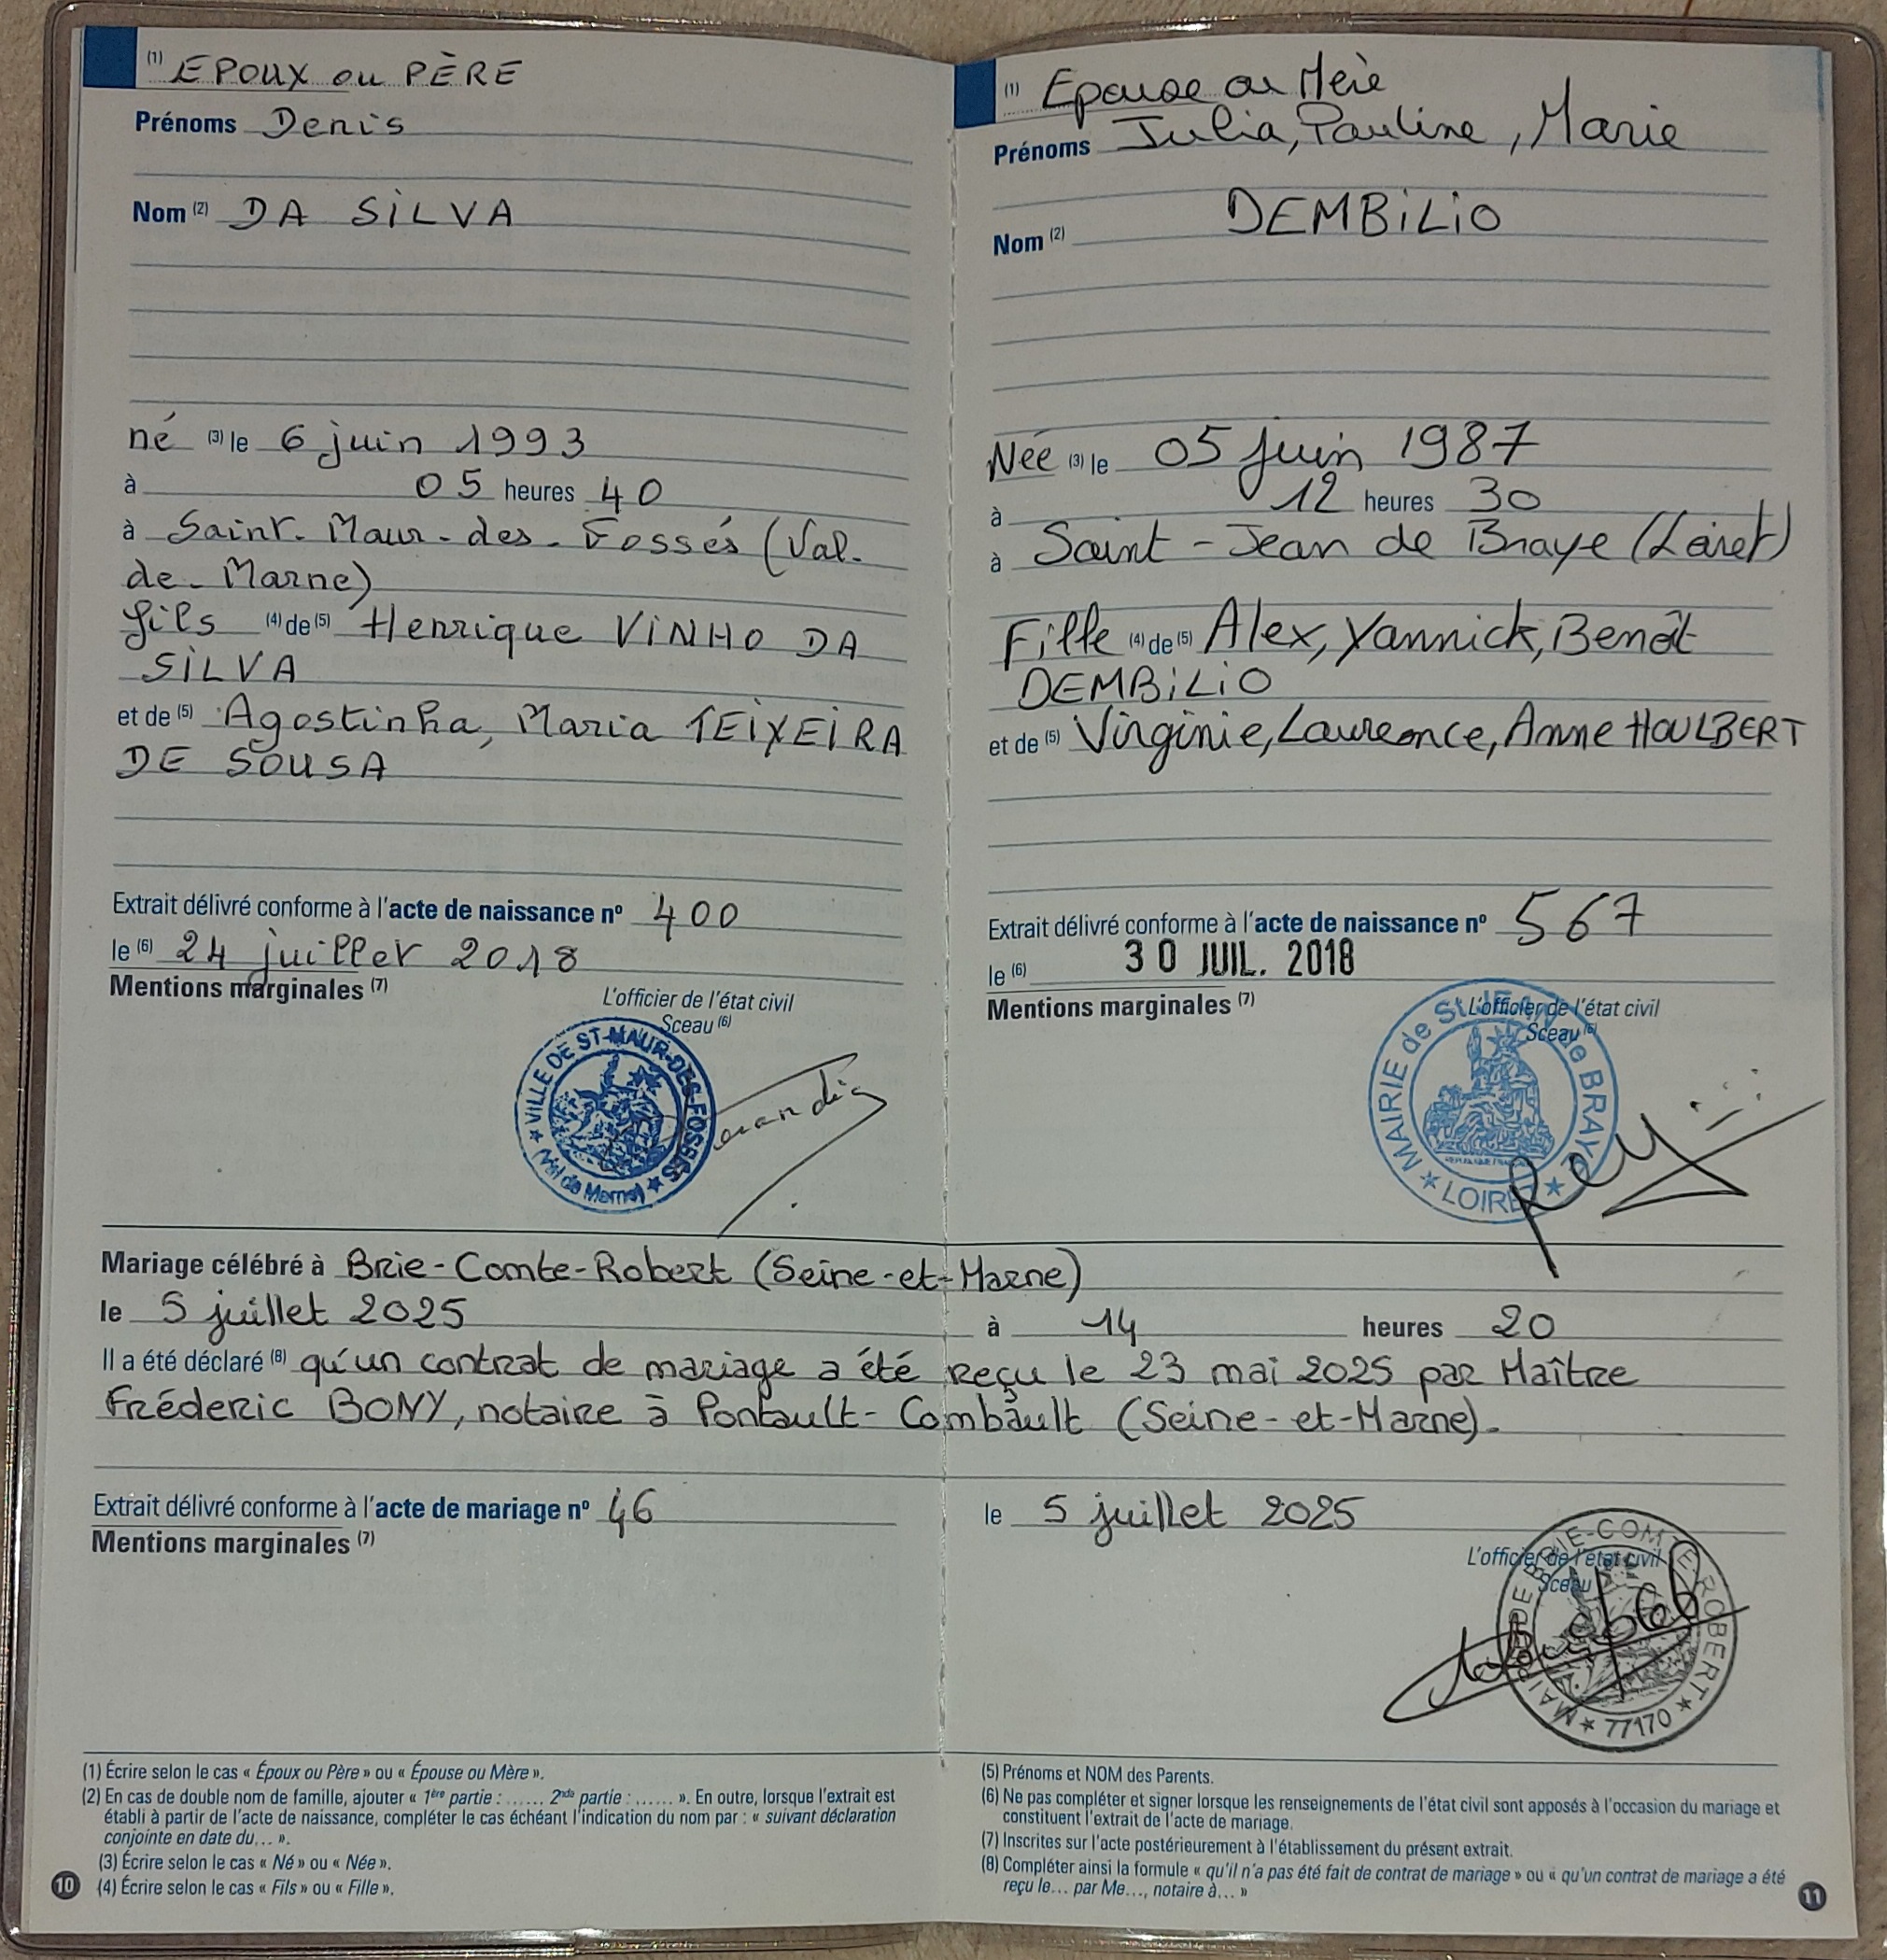 (1) EPOUX ou PÈRE
Prénoms Denis
Nom (2) DA SILVA
né (3) le 6 juin 1993
à 05 heures 40
à Saint-Maur-des-Fossés (Val-
de-Marne)
fils (4) de (5) Henrique VINHO DA
SILVA
et de (5) Agostinha, Maria TEIXEIRA
DE SOUSA
Extrait délivré conforme à l'acte de naissance nº 400
le (6) 24 juillet 2018
Mentions marginales (7)
L'officier de l'état civil
Sceau (6)
★ VILLE DE ST-MAUR-DES-FOSSÉS ★ (Val de Marne)
(1) Epouse ou Mère
Prénoms Julia, Pauline, Marie
Nom (2) DEMBILIO
Née (3) le 05 juin 1987
à 12 heures 30
à Saint-Jean de Braye (Loiret)
Fille (4) de (5) Alex, Yannick, Benoît
DEMBILIO
et de (5) Virginie, Laurence, Anne HOULBERT
Extrait délivré conforme à l'acte de naissance nº 567
le (6) 30 JUIL. 2018
Mentions marginales (7)
L'officier de l'état civil
Sceau (6)
MAIRIE de St JEAN de BRAYE ★ LOIRET ★
Mariage célébré à Brie-Comte-Robert (Seine-et-Marne)
le 5 juillet 2025 à 14 heures 20
Il a été déclaré (8) qu'un contrat de mariage a été reçu le 23 mai 2025 par Maître
Fréderic BONY, notaire à Pontault-Combault (Seine-et-Marne).
Extrait délivré conforme à l'acte de mariage nº 46 le 5 juillet 2025
Mentions marginales (7)
L'officier de l'état civil
Sceau
MAIRIE DE BRIE-COMTE-ROBERT ★ 77170 ★
(1) Écrire selon le cas « Époux ou Père » ou « Épouse ou Mère ».
(2) En cas de double nom de famille, ajouter « 1ère partie : ...... 2nde partie : ...... ». En outre, lorsque l'extrait est
établi à partir de l'acte de naissance, compléter le cas échéant l'indication du nom par : « suivant déclaration
conjointe en date du... ».
(3) Écrire selon le cas « Né » ou « Née ».
(4) Écrire selon le cas « Fils » ou « Fille ».
10
(5) Prénoms et NOM des Parents.
(6) Ne pas compléter et signer lorsque les renseignements de l'état civil sont apposés à l'occasion du mariage et
constituent l'extrait de l'acte de mariage.
(7) Inscrites sur l'acte postérieurement à l'établissement du présent extrait.
(8) Compléter ainsi la formule « qu'il n'a pas été fait de contrat de mariage » ou « qu'un contrat de mariage a été
reçu le... par Me..., notaire à... »
11